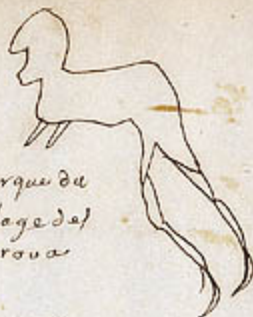 rque du
lage del
rova